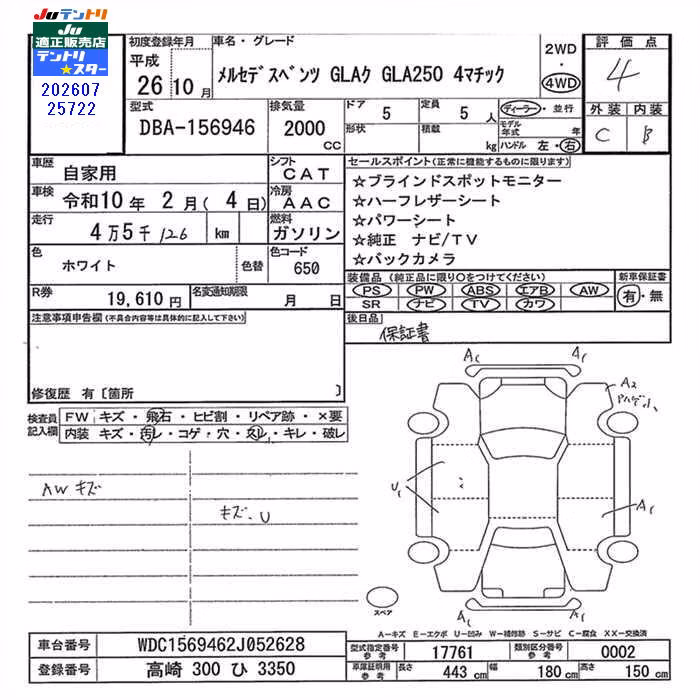 Juテントリ
Ju
適正販売店
テントリ
★スター
202607
25722
初度登録年月
平成
26年10月
車名・グレード
メルセデスベンツ GLAク GLA250 4マチック
2WD
・
4WD
評価点
4
外装 内装
C B
型式
DBA-156946
排気量
2000
CC
ドア 5
形状
定員 5人
積載 kg
ディーラー・並行
モデル年式 年
ハンドル 左・右
車歴 自家用
シフト CAT
車検 令和10年2月(4日)
冷房 AAC
走行 4万5千126 km
燃料 ガソリン
色 ホワイト 色替
色コード 650
R券 19,610円
名変通知期限 月 日
セールスポイント(正常に機能するものに限ります)
☆ブラインドスポットモニター
☆ハーフレザーシート
☆パワーシート
☆純正 ナビ/TV
☆バックカメラ
装備品(純正品に限り○をつけてください)
PS PW ABS エアB AW
SR ナビ TV カワ
新車保証書
有・無
後日品
保証書
注意事項申告欄(不具合内容等は具体的に記入して下さい)
修復歴 有〔箇所 〕
検査員記入欄
FW キズ・飛石・ヒビ割・リペア跡・×要
内装 キズ・汚レ・コゲ・穴・スレ・キレ・破レ
AWキズ
キズ、U
A1 A1
A2
U1
A1
A1 A1
スペア
A-キズ E-エクボ U-凹み W-補修跡 S-サビ C-腐食 XX-交換済
車台番号 WDC1569462J052628
登録番号 高崎 300 ひ 3350
型式指定番号参考 17761
類別区分番号参考 0002
車庫証明用参考 長さ 443cm 幅 180cm 高さ 150cm